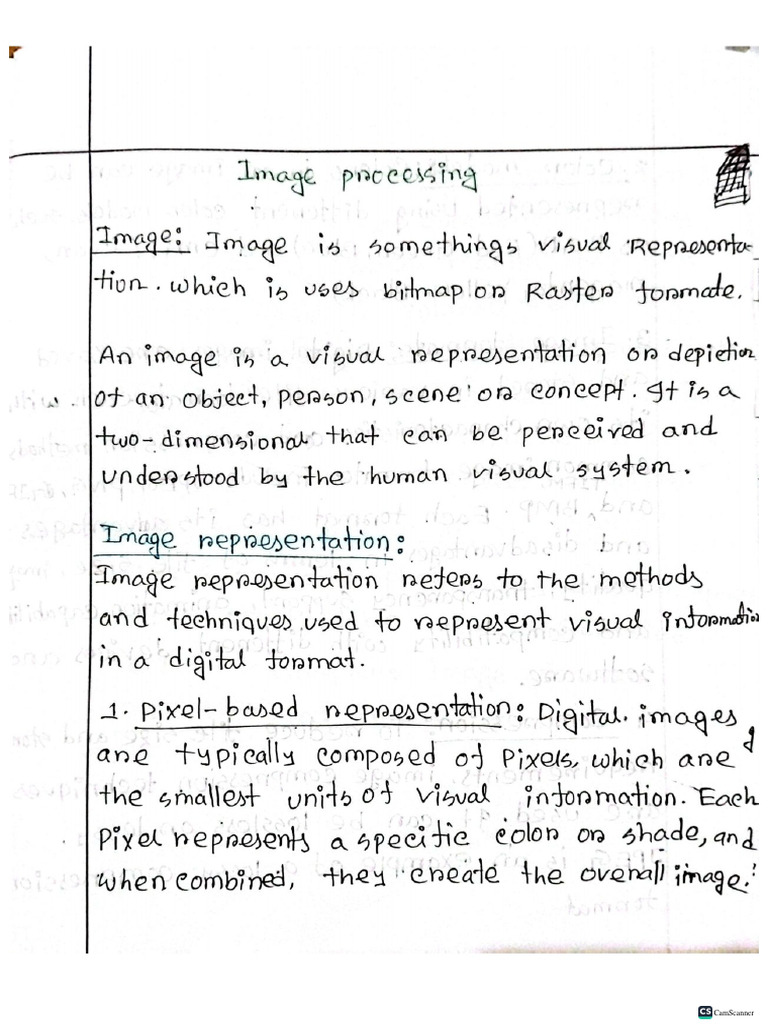 Image processing
Image: Image is somethings visual Representa-
tion. which is uses bitmap or Raster formate.
An image is a visual representation or depiction
of an object, person, scene or concept. It is a
two-dimensional that can be perceived and
understood by the human visual system.
Image representation:
Image representation refers to the methods
and techniques used to represent visual information
in a digital format.
1. Pixel-based representation: Digital images
are typically composed of Pixels, which are
the smallest units of visual information. Each
Pixel represents a specific color or shade, and
when combined, they create the overall image.
CS CamScanner